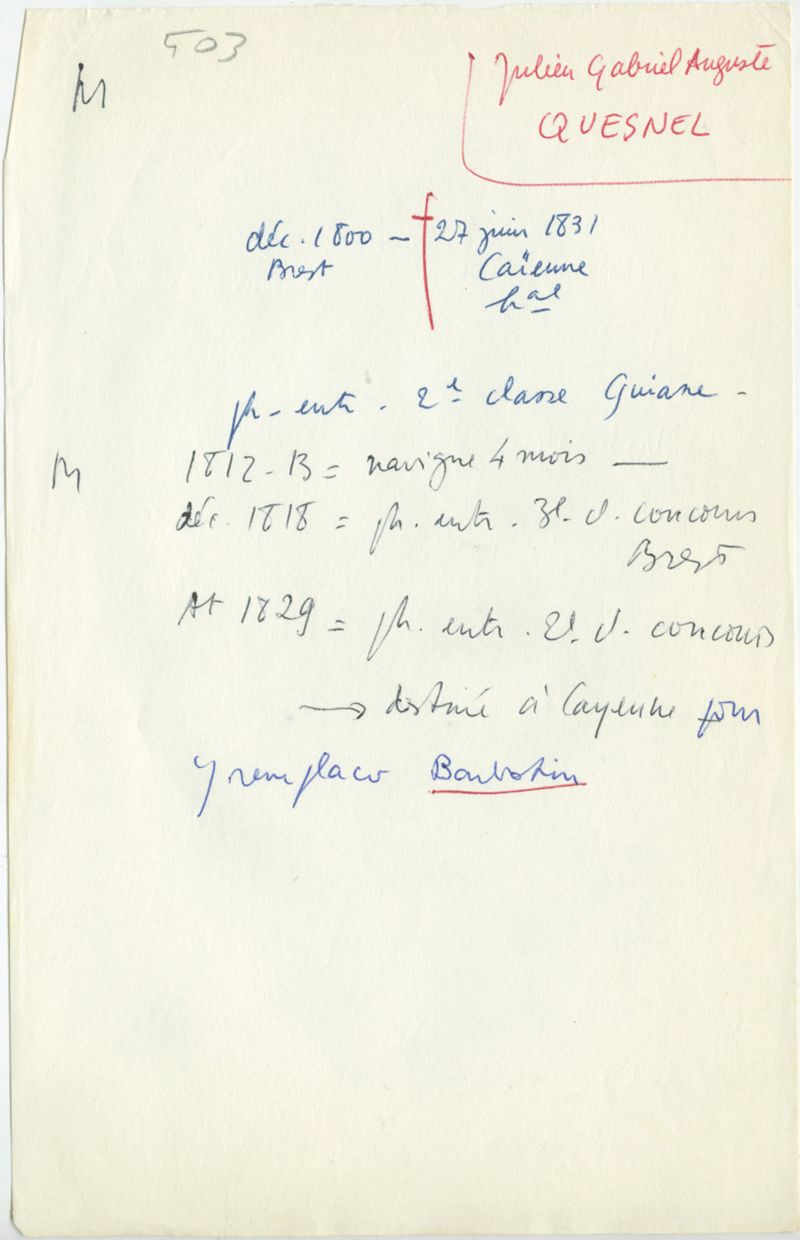 503
M
Julien Gabriel Auguste
QUESNEL
déc. 1800 – † 27 juin 1831
Brest Caïenne
hal
ph. entr. 2e classe Guiane -
M 1812-13 = navigue 4 mois —
déc. 1818 = ph. entr. 3e cl. concours
Brest
At 1829 = ph. entr. 2e cl. concours
→ destiné à Cayenne pour
y remplacer Barbotin